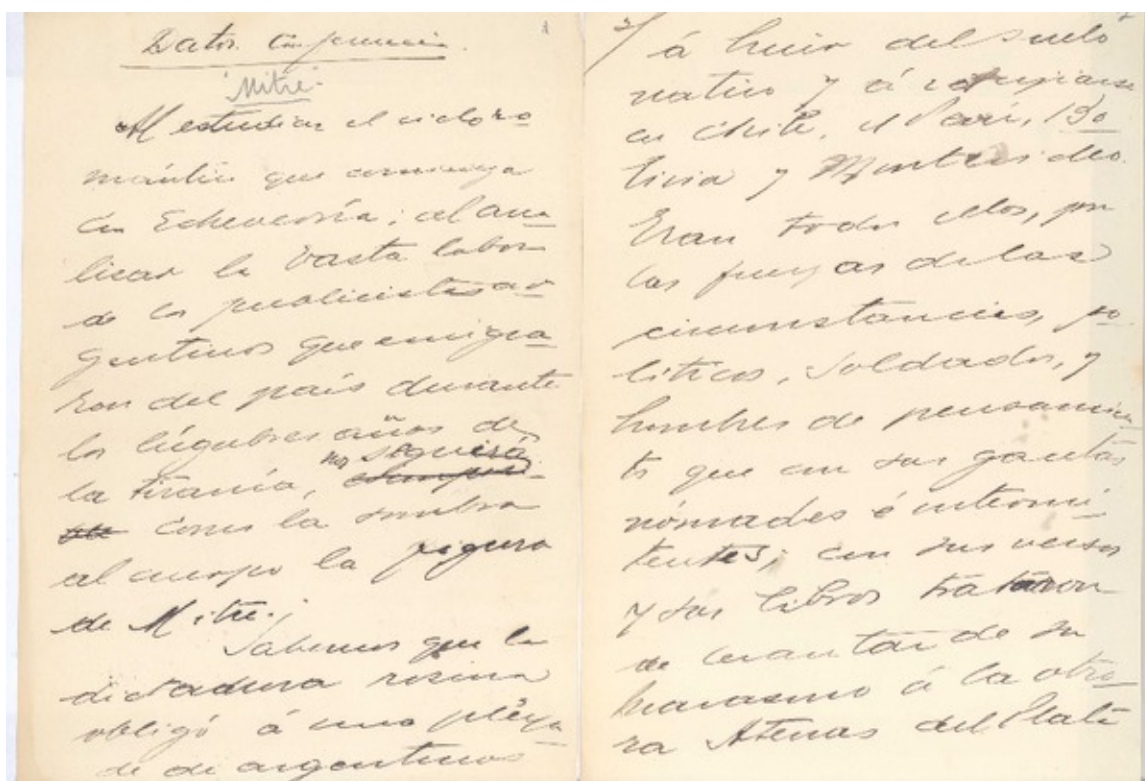 Datos Conferencia.
1
Mitre.
Al estudiar el ciclo ro
mántico que comienza
con Echeverría; al ana
lizar la vasta labor
de los publicistas ar
gentinos que emigra
ron del país durante
los lúgubres años de
la tiranía, nos seguirá
como la sombra
al cuerpo la figura
de Mitre.
Sabemos que la
dictadura rosina
obligó á una pléya
de de argentinos
2/ á huir del suelo
nativo y á refugiarse
en Chile, el Perú, Bo
livia y Montevideo.
Eran todos ellos, por
las fuerzas de las
circunstancias, po
líticos, soldados, y
hombres de pensamien
to que en sus gacetas
nómades é intermi
tentes; con sus versos
y sus libros trataron
de levantar de su
marasmo á la otro
ra Atenas del Plata